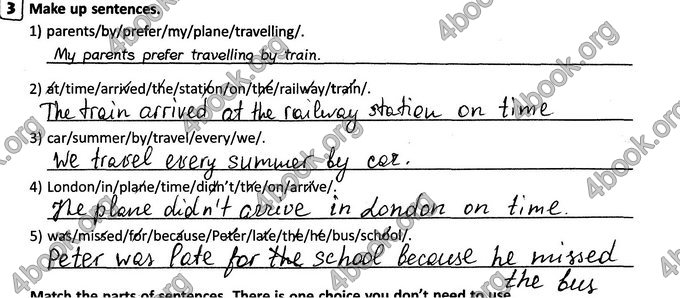 3 Make up sentences.
1) parents/by/prefer/my/plane/travelling/.
My parents prefer travelling by train.
2) at/time/arrived/the/station/on/the/railway/train/.
The train arrived at the railway station on time
3) car/summer/by/travel/every/we/.
We travel every summer by car.
4) London/in/plane/time/didn't/the/on/arrive/.
The plane didn't arrive in London on time.
5) was/missed/for/because/Peter/late/the/he/bus/school/.
Peter was late for the school because he missed
the bus
Match the parts of sentences. There is one choice you don't need to use
4book.org
4book.org
4book.org
4book.org
4book.org
4book.org